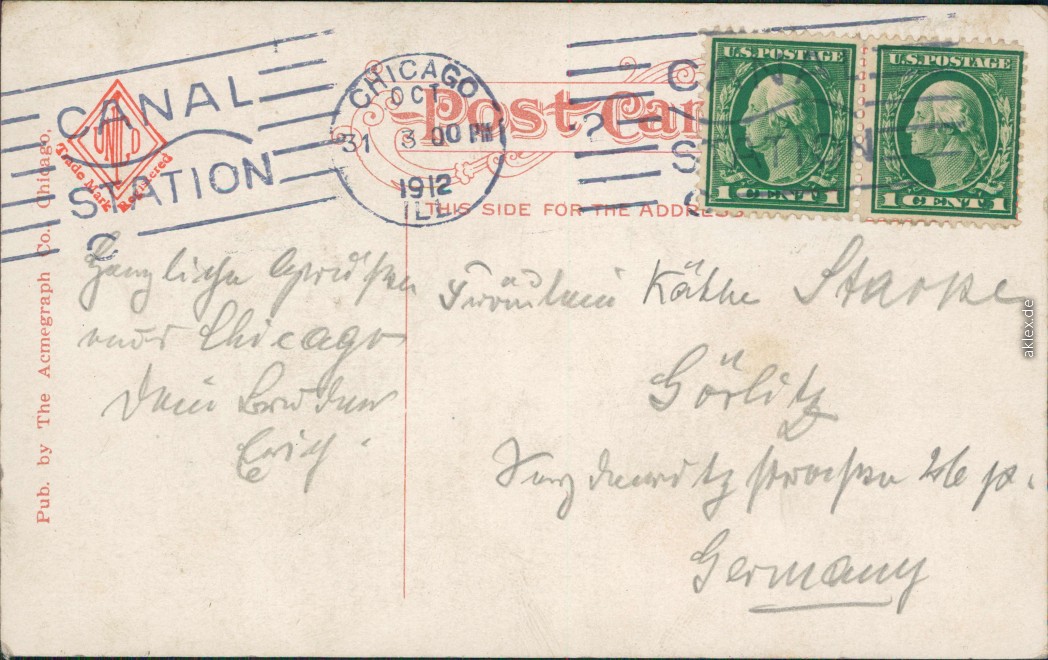 CANAL
STATION
CHICAGO
OCT
31 3 00 PM
1912
ILL
Post Car
CANAL
STATION
U.S. POSTAGE
1 CENT 1
U.S. POSTAGE
1 CENT 1
Trade Mark Registered
THIS SIDE FOR THE ADDRESS
Pub. by The Acmegraph Co., Chicago.
Herzliche Grüßen
aus Chicago
Dein Bruder
Erich.
Fräulein Käthe Starke
Görlitz
26
Germany
aklex.de